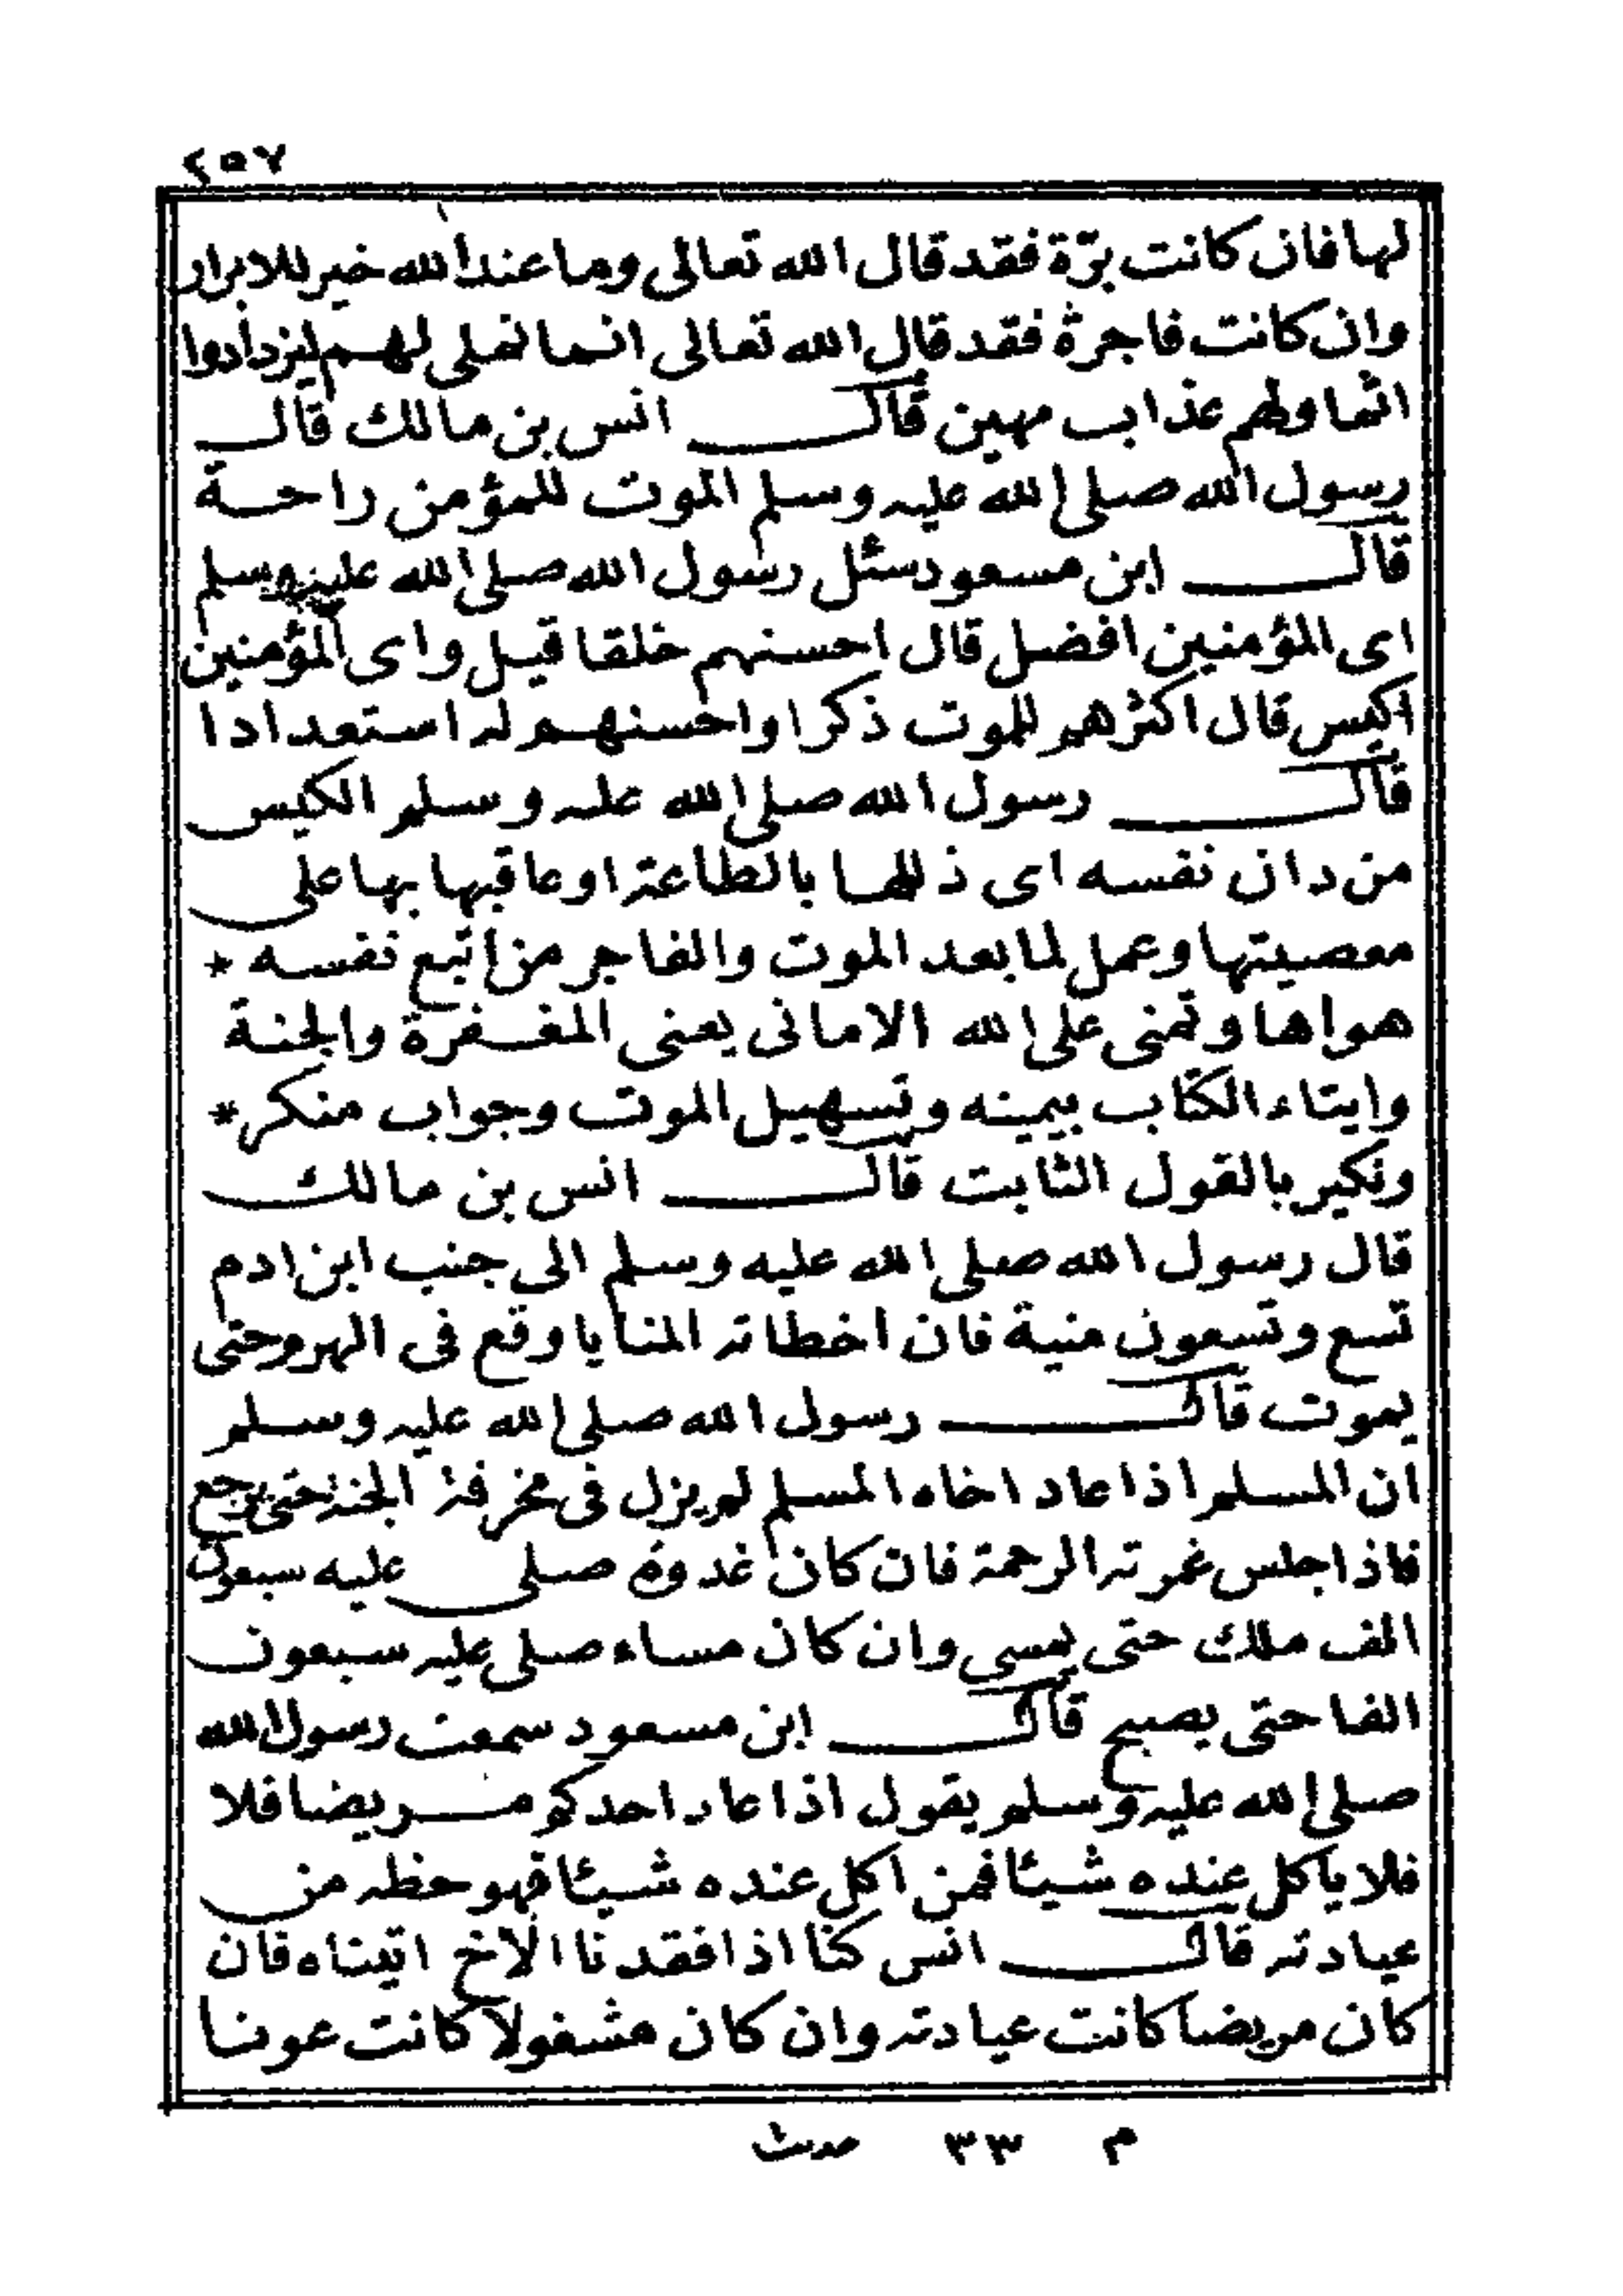 ٢٥٧
لها فان كانت برّة فقد قال الله تعالى وما عند الله خير للابرار
وان كانت فاجرة فقد قال الله تعالى انما نملى لهم ليزدادوا
اثما ولهم عذاب مهين قال انس بن مالك قال
رسول الله صلى الله عليه وسلم الموت للمؤمن راحة
قال ابن مسعود سئل رسول الله صلى الله عليه وسلم
اى المؤمنين افضل قال احسنهم خلقا قيل واى المؤمنين
اكيس قال اكثرهم للموت ذكرا واحسنهم له استعدادا
قال رسول الله صلى الله عله وسلم الكيس
من دان نفسه اى ذللها بالطاعة او عاقبها بها على
معصيتها وعمل لما بعد الموت والفاجر من اتبع نفسه *
هواها وتمنى على الله الامانى يعنى المغفرة والجنة
وايتاء الكتاب بيمينه وتسهيل الموت وجواب منكر *
ونكير بالقول الثابت قال انس بن مالك
قال رسول الله صلى الله عليه وسلم الى جنب ابن ادم
تسع وتسعون منية فان اخطاته المنايا وقع فى الهرم حتى
يموت قال رسول الله صلى الله عليه وسلم
ان المسلم اذا عاد اخاه المسلم لم يزل فى مخرفة الجنة حتى يرجع
فاذا جلس غمرته الرحمة فان كان غدوة صلى عليه سبعون
الف ملك حتى يمسى وان كان مساء صلى عليه سبعون
الفا حتى يصبح قال ابن مسعود سمعت رسول الله
صلى الله عليه وسلم يقول اذا عاد احدكم مريضا فلا
فلا ياكل عنده شيئا فمن اكل عنده شيئا فهو حظه من
عيادته قال انس كنا اذا فقدنا الاخ اتيناه فان
كان مريضا كانت عيادته وان كان مشغولا كانت عونا
م ٣٣ حدث